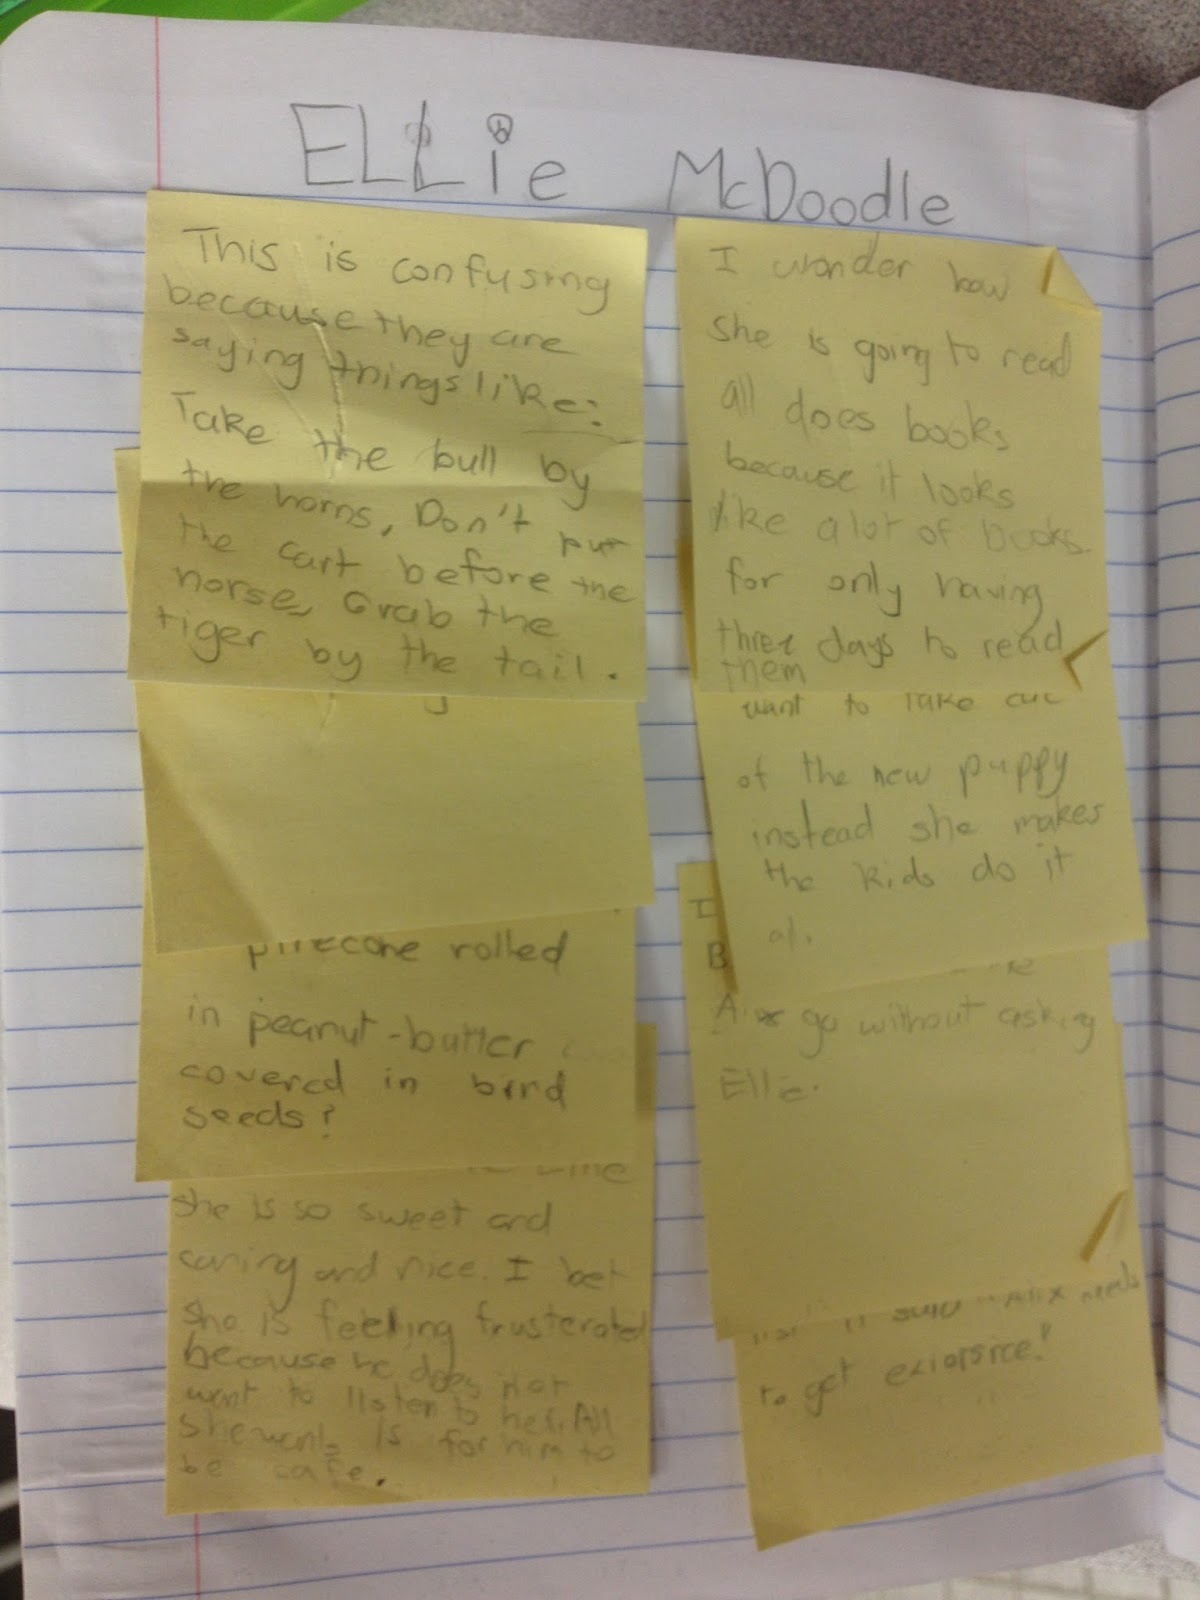 ELLie McDoodle
This is confusing
because they are
saying things like:
Take the bull by
the horns, Don't put
the cart before the
horse, Grab the
tiger by the tail.
pinecone rolled
in peanut-butter
covered in bird
seeds?
she is so sweet and
caring and nice. I bet
she is feeling frusterated
because he does not
want to listen to her. All
she wants is for him to
be safe.
I wonder how
she is going to read
all does books
because it looks
like a lot of books
for only having
three days to read
them
want to take
of the new puppy
instead she makes
the kids do it
I
B
go without asking
Ellie.
it said "Alix needs
to get exiorsice."